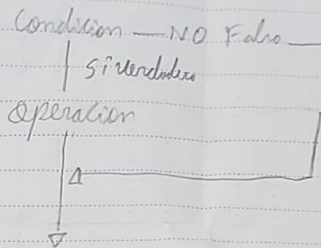 Condicion — NO Falso
si verdadero
Operacion